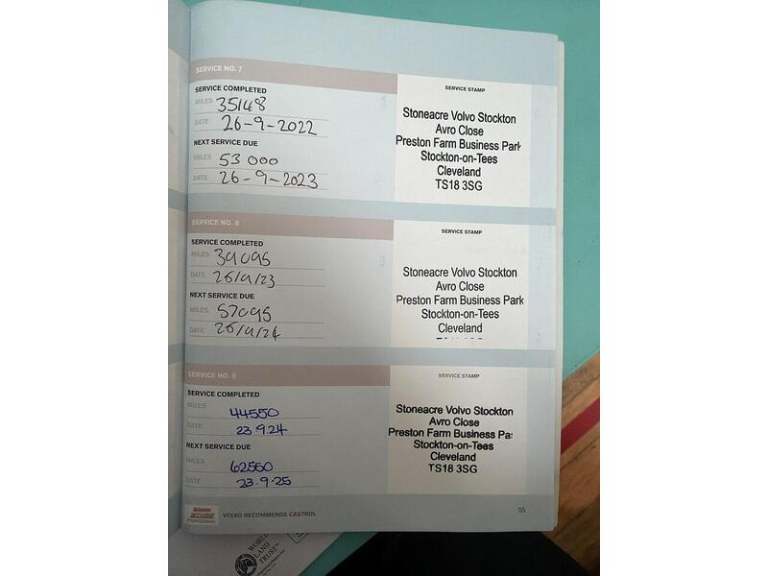 SERVICE NO. 7
SERVICE COMPLETED
MILES 35148
DATE 26-9-2022
NEXT SERVICE DUE
MILES 53 000
DATE 26-9-2023
SERVICE STAMP
Stoneacre Volvo Stockton
Avro Close
Preston Farm Business Park
Stockton-on-Tees
Cleveland
TS18 3SG
SERVICE NO. 8
SERVICE COMPLETED
MILES 39095
DATE 26/9/23
NEXT SERVICE DUE
MILES 57095
DATE 26/9/24
SERVICE STAMP
Stoneacre Volvo Stockton
Avro Close
Preston Farm Business Park
Stockton-on-Tees
Cleveland
SERVICE NO. 9
SERVICE COMPLETED
MILES 44550
DATE 23.9.24
NEXT SERVICE DUE
MILES 62550
DATE 23.9.25
SERVICE STAMP
Stoneacre Volvo Stockton
Avro Close
Preston Farm Business Pa
Stockton-on-Tees
Cleveland
TS18 3SG
VOLVO RECOMMENDS CASTROL
55
WORLD
LAND
TRUST